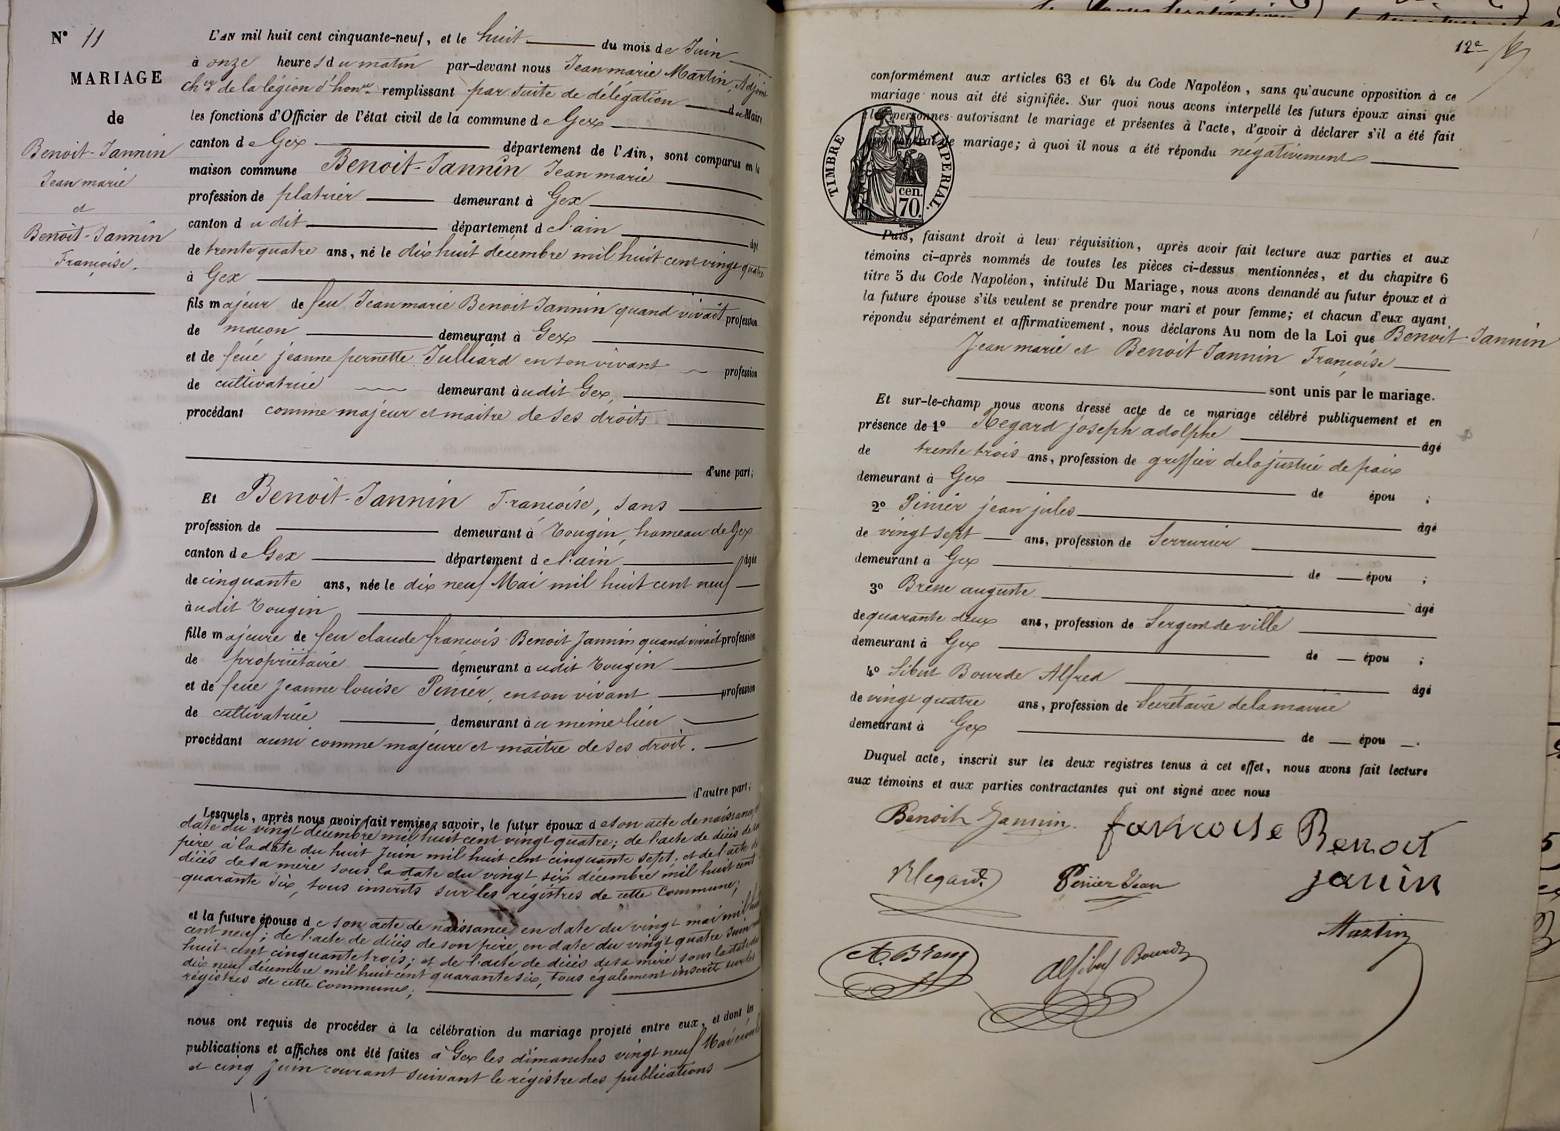 N° 11
MARIAGE
de
Benoit-Jannin
Jean marie
et
Benoit-Jannin
Françoise.
L'AN mil huit cent cinquante-neuf, et le huit du mois de Juin
à onze heures du matin par-devant nous Jean marie Martin, Adjoint
chr de la légion d'honr remplissant par suite de délégation du Maire
les fonctions d'Officier de l'état civil de la commune de Gex
canton de Gex département de l'Ain, sont comparus en la
maison commune Benoit-Jannin Jean marie
profession de platrier demeurant à Gex
canton dudit département de l'ain âgé
de trente quatre ans, né le dix huit décembre mil huit cent vingt quatre
à Gex
fils majeur de feu Jean marie Benoit Jannin quand vivait profession
de macon demeurant à Gex
et de feue jeanne pernette Julliard en son vivant profession
de cultivatrice demeurant audit Gex,
procédant comme majeur et maitre de ses droits
d'une part;
Et Benoit-Jannin Françoise, sans
profession de demeurant à Tougin, hameau de Gex
canton de Gex département de l'ain âgée
de cinquante ans, née le dix neuf Mai mil huit cent neuf
audit Tougin
fille majeure de feu claude françois Benoit Jannin quand vivait profession
de propriétaire demeurant audit Tougin
et de feue Jeanne louise Pinier, en son vivant profession
de cultivatrice demeurant au même lieu
procédant aussi comme majeure et maitre de ses droit.
d'autre part;
Lesquels, après nous avoir fait remise, savoir, le futur époux de son acte de naissance,
date du vingt décembre mil huit cent vingt quatre; de l'acte de décès de
père à la date du huit Juin mil huit cent cinquante sept, et de l'acte de
décès de sa mère sous la date du vingt six décembre mil huit cent
quarante six, tous inscrits sur les régistres de cette Commune;
et la future épouse de son acte de naissance en date du vingt mai mil huit
cent neuf; de l'acte de décès de son père, en date du vingt quatre Juin mil
huit cent cinquante trois; et de l'acte de décès de sa mère sous la date du
dix neuf décembre mil huit cent quarante six, tous également inscrits sur les
régistres de cette Commune;
nous ont requis de procéder à la célébration du mariage projeté entre eux, et dont les
publications et affiches ont été faites à Gex les dimanches vingt neuf Mai
et cinq Juin courant suivant le régistre des publications
12e
conformément aux articles 63 et 64 du Code Napoléon, sans qu'aucune opposition à ce
mariage nous ait été signifiée. Sur quoi nous avons interpellé les futurs époux ainsi que
les personnes autorisant le mariage et présentes à l'acte, d'avoir à déclarer s'il a été fait
contrat de mariage; à quoi il nous a été répondu négativement
TIMBRE IMPERIAL.
cen.
70.
Puis, faisant droit à leur réquisition, après avoir fait lecture aux parties et aux
témoins ci-après nommés de toutes les pièces ci-dessus mentionnées, et du chapitre 6
titre 5 du Code Napoléon, intitulé Du Mariage, nous avons demandé au futur époux et à
la future épouse s'ils veulent se prendre pour mari et pour femme; et chacun d'eux ayant
répondu séparément et affirmativement, nous déclarons Au nom de la Loi que Benoit-Jannin
Jean marie et Benoit Jannin Françoise
sont unis par le mariage.
Et sur-le-champ nous avons dressé acte de ce mariage célébré publiquement et en
présence de 1° Regard joseph adolphe âgé
de trente trois ans, profession de greffier de la justice de paix
demeurant à Gex de épou ;
2° Pinier jean jules âgé
de vingt sept ans, profession de Serrurier
demeurant à Gex de épou ;
3° auguste âgé
de quarante deux ans, profession de Sergent de ville
demeurant à Gex de épou ;
4° Sibut Bourde Alfred âgé
de vingt quatre ans, profession de Secrétaire de la mairie
demeurant à Gex de épou .
Duquel acte, inscrit sur les deux registres tenus à cet effet, nous avons fait lecture
aux témoins et aux parties contractantes qui ont signé avec nous
Benoit Jannin. francoise Benoit
janin
Regard. Penier Jean
Martin